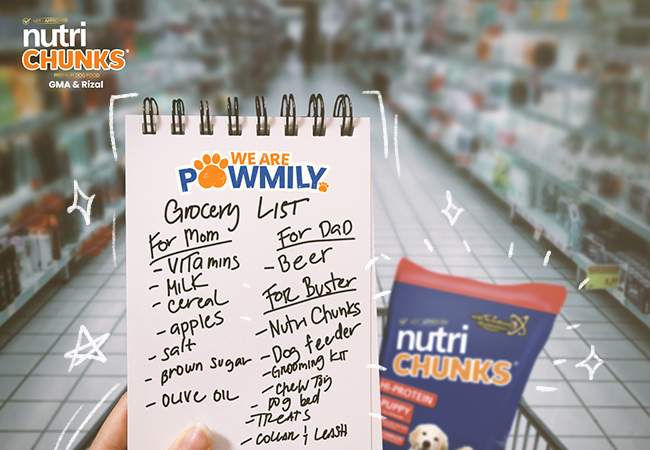 VET - APPROVED
nutri
CHUNKS®
PREMIUM DOG FOOD
GMA & Rizal
WE ARE
PAWMILY.
Grocery LIST
For Mom
- VITamins
- MILK
- cereal
- apples
- salt
- Brown sugar
- OLIVE OIL
For DaD
- Beer
FOR Buster
- Nutri Chunks
- Dog feeder
- Grooming KIT
- Chew Toy
- Dog bed
- TREATS
- COLLAR & LEASH
VET-APPROVED
nutri
CHUNKS
HI-PROTEIN
PUPPY